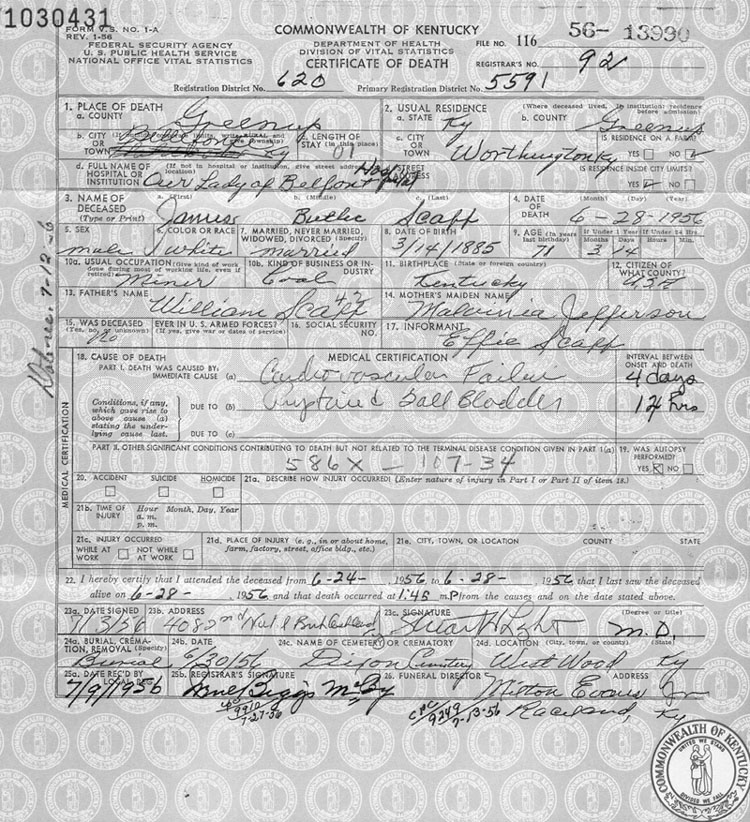 1030431
FORM V.S. NO. 1-A
REV. 1-56
FEDERAL SECURITY AGENCY
U. S. PUBLIC HEALTH SERVICE
NATIONAL OFFICE VITAL STATISTICS
COMMONWEALTH OF KENTUCKY
DEPARTMENT OF HEALTH
DIVISION OF VITAL STATISTICS
CERTIFICATE OF DEATH
FILE NO. 116 56- 13990
REGISTRAR'S NO. 92
Registration District No. 620 Primary Registration District No. 5591
1. PLACE OF DEATH
a. COUNTY Greenup
b. CITY
OR
TOWN
c. LENGTH OF
STAY (in this place)
d. FULL NAME OF (If not in hospital or institution, give street address)
HOSPITAL OR
INSTITUTION Our Lady of Belfont Hospital
2. USUAL RESIDENCE (Where deceased lived. If institution: residence before admission)
a. STATE Ky b. COUNTY Greenup
c. CITY
OR
TOWN Worthington Ky
IS RESIDENCE ON A FARM?
YES NO
STREET
ADDRESS
IS RESIDENCE INSIDE CITY LIMITS?
YES NO
3. NAME OF
DECEASED
(Type or Print)
a. (First) b. (Middle) c. (Last)
James Butler Scaff
4. DATE
OF
DEATH
(Month) (Day) (Year)
6-28-1956
5. SEX
male
6. COLOR OR RACE
White
7. MARRIED, NEVER MARRIED,
WIDOWED, DIVORCED (Specify)
married
8. DATE OF BIRTH
3/14/1885
9. AGE (In years
last birthday)
71
If Under 1 Year If Under 24 Hrs.
Months Days Hours Min.
3 14
10a. USUAL OCCUPATION (Give kind of work
done during most of working life, even if
retired)
Miner
10b. KIND OF BUSINESS OR IN-
DUSTRY
Coal
11. BIRTHPLACE (State or foreign country)
Kentucky
12. CITIZEN OF
WHAT COUNTRY?
USA
13. FATHER'S NAME
William Scaff
14. MOTHER'S MAIDEN NAME
Malvinia Jefferson
15. WAS DECEASED EVER IN U. S. ARMED FORCES?
(Yes, no, unknown) (If yes, give war or dates of service)
No
16. SOCIAL SECURITY
NO.
17. INFORMANT
Effie Scaff
18. CAUSE OF DEATH
MEDICAL CERTIFICATION
INTERVAL BETWEEN
ONSET AND DEATH
PART I. DEATH WAS CAUSED BY:
IMMEDIATE CAUSE (a) Cardiovascular Failure 4 days
Conditions, if any,
which gave rise to
above cause (a)
stating the under-
lying cause last.
DUE TO (b) Ruptured Gall Bladder 12 hrs
DUE TO (c)
PART II. OTHER SIGNIFICANT CONDITIONS CONTRIBUTING TO DEATH BUT NOT RELATED TO THE TERMINAL DISEASE CONDITION GIVEN IN PART 1(a)
586X - 107-34
19. WAS AUTOPSY
PERFORMED?
YES NO
MEDICAL CERTIFICATION
20. ACCIDENT SUICIDE HOMICIDE
21a. DESCRIBE HOW INJURY OCCURRED: (Enter nature of injury in Part I or Part II of item 18.)
21b. TIME OF Hour Month, Day, Year
INJURY a. m.
p. m.
21c. INJURY OCCURRED
WHILE AT
WORK
NOT WHILE
AT WORK
21d. PLACE OF INJURY (e. g., in or about home,
farm, factory, street, office bldg., etc.)
21e. CITY, TOWN, OR LOCATION COUNTY STATE
22. I hereby certify that I attended the deceased from 6-24-, 1956 to 6-28-, 1956 that I last saw the deceased
alive on 6-28-, 1956 and that death occurred at 1:45 m.P from the causes and on the date stated above.
23a. DATE SIGNED
7/3/56
23b. ADDRESS
23c. SIGNATURE (Degree or title)
M.D.
24a. BURIAL, CREMA-
TION, REMOVAL (Specify)
Burial
24b. DATE
6/30/56
24c. NAME OF CEMETERY OR CREMATORY
Dixon Cemetery
24d. LOCATION (City, town, or county) (State)
West Wood Ky
25a. DATE REC'D BY
LOCAL REG.
7/9/1956
25b. REGISTRAR'S SIGNATURE
26. FUNERAL DIRECTOR ADDRESS
Milton Evans Jr
Raceland, Ky
9910
7-27-56
9249
7-13-56
7-12-6
COMMONWEALTH OF KENTUCKY
UNITED WE STAND
DIVIDED WE FALL